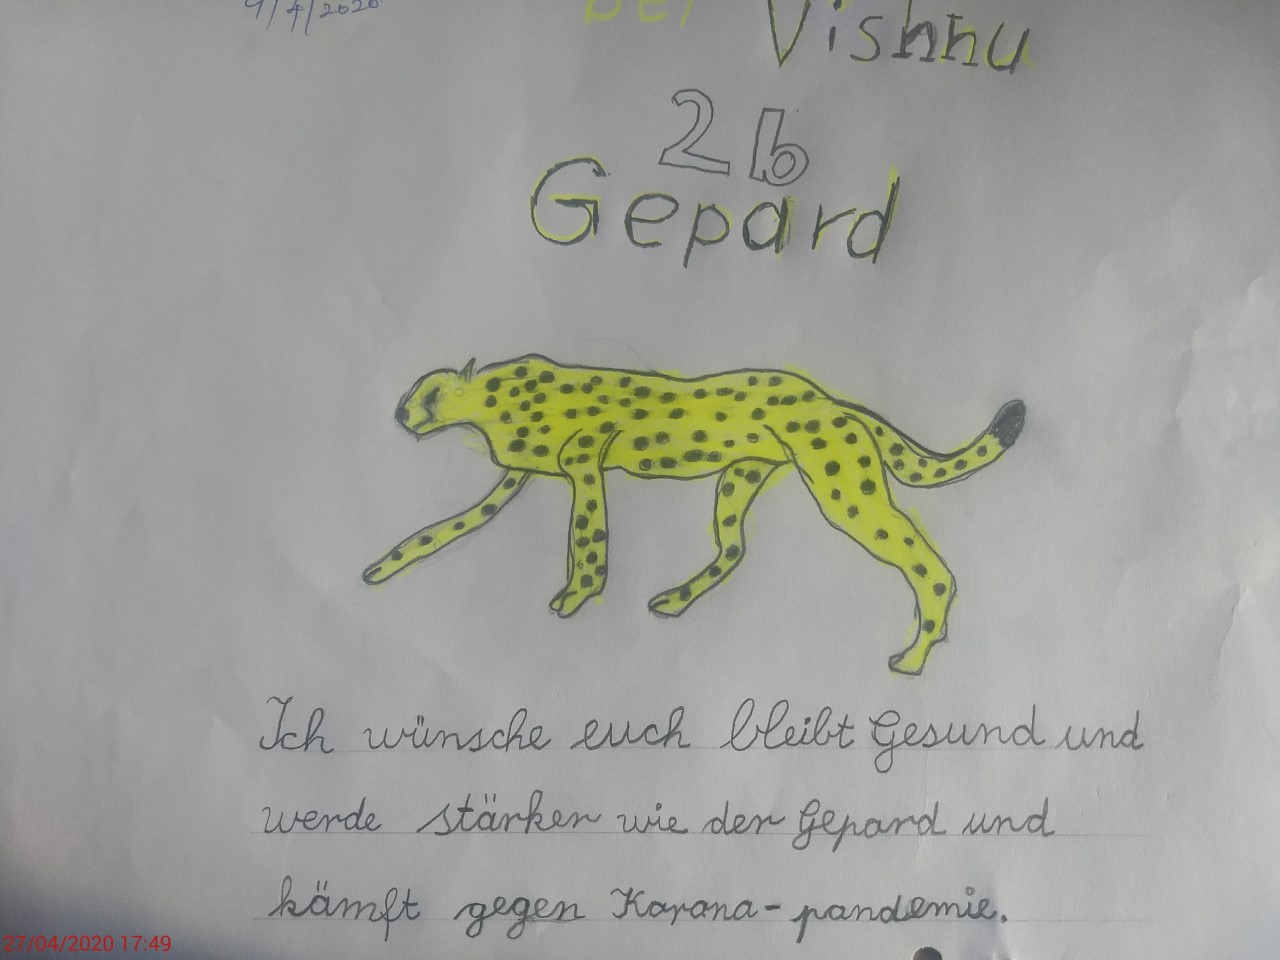 9/4/2020
Vishnu
2b
Gepard
Ich wünsche euch bleibt Gesund und
werde stärker wie der Gepard und
kämft gegen Korona-pandemie.
27/04/2020 17:49